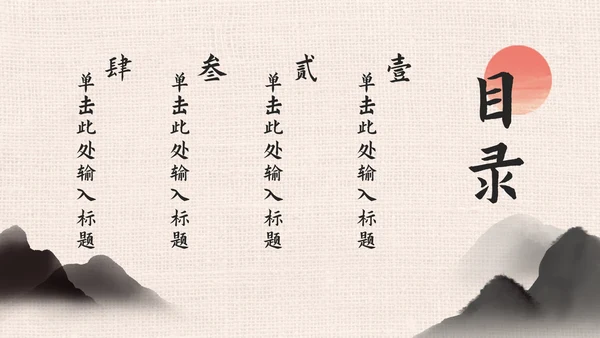 目录
壹
单击此处输入标题
贰
单击此处输入标题
叁
单击此处输入标题
肆
单击此处输入标题